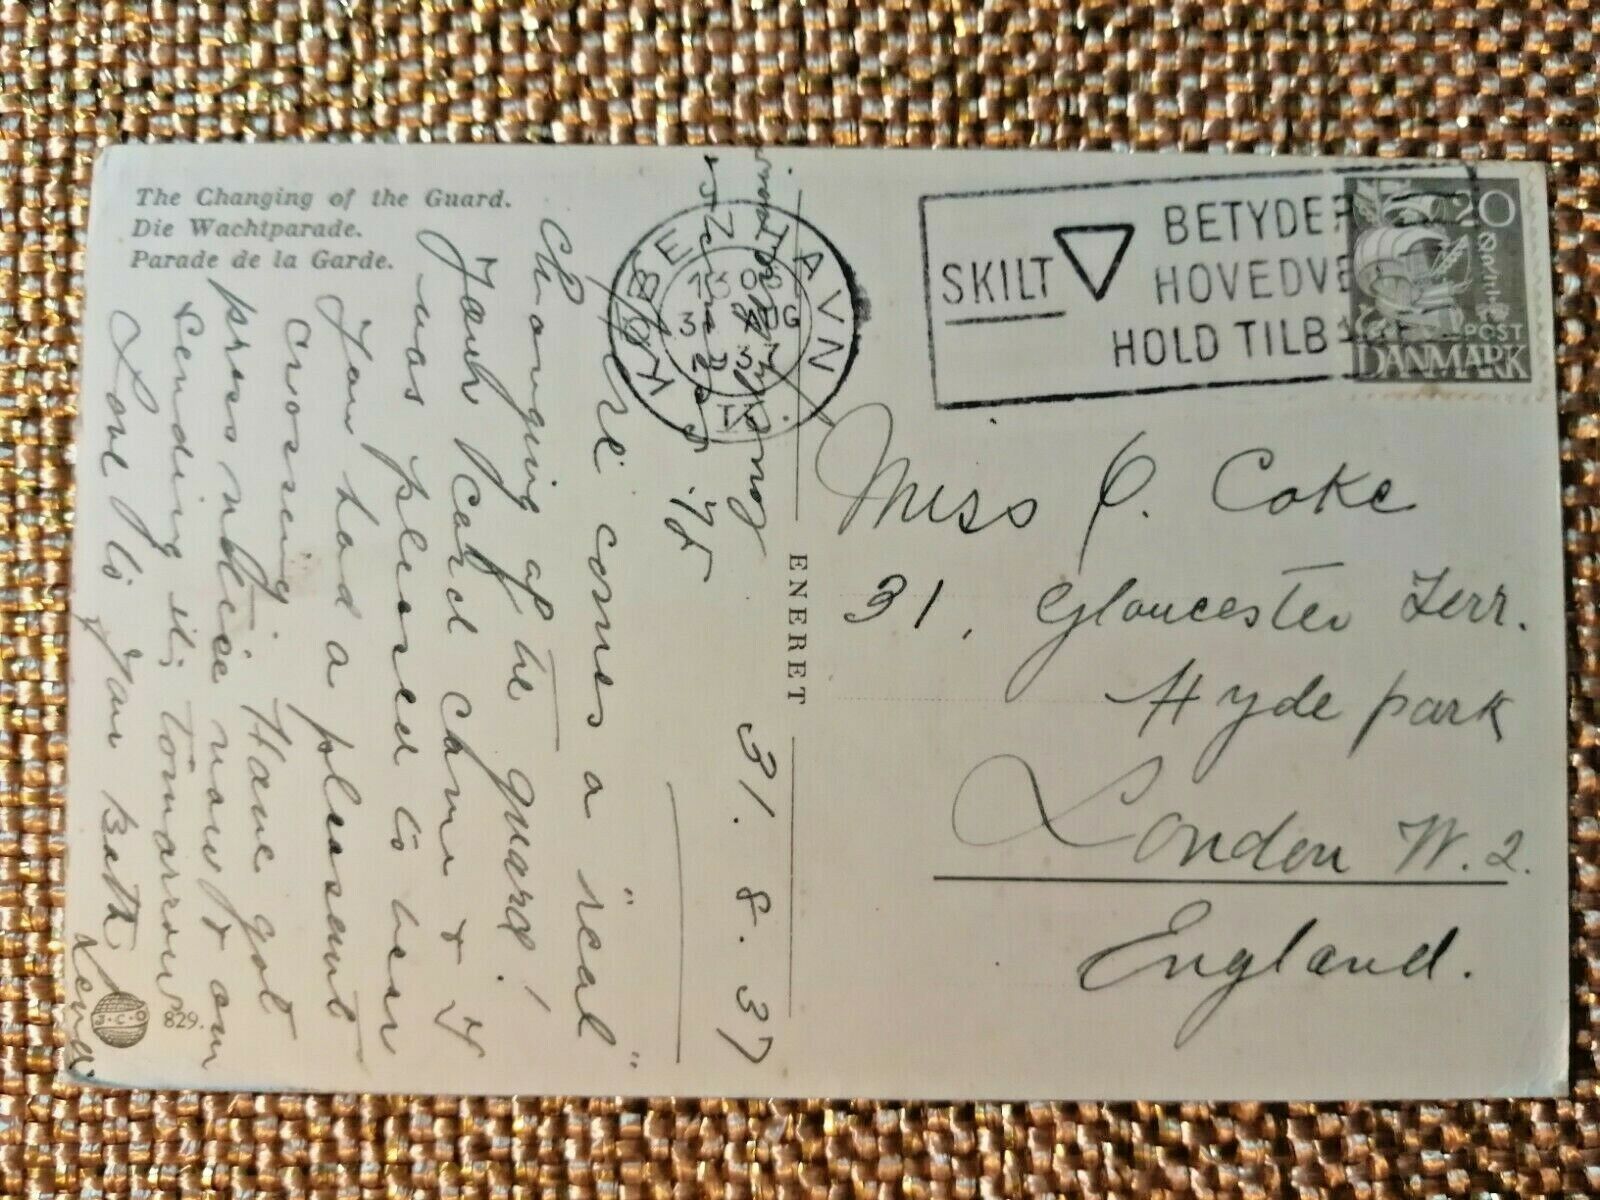 The Changing of the Guard.
Die Wachtparade.
Parade de la Garde.
31.8.37
Here comes a "real"
Changing of the guard!
Your card came & I
was pleased to hear
You had a pleasant
crossing. Have got
press notice now & am
sending it; tomorrow
Love to you both
J.C.O
829.
ENERET
KØBENHAVN
13 05
31 AUG
37
SKILT
BETYDER
HOVEDVE
HOLD TILB
20
ØRE
POST
DANMARK
Miss C. Coke
31, Gloucester Terr.
Hyde park
London W.2.
England.